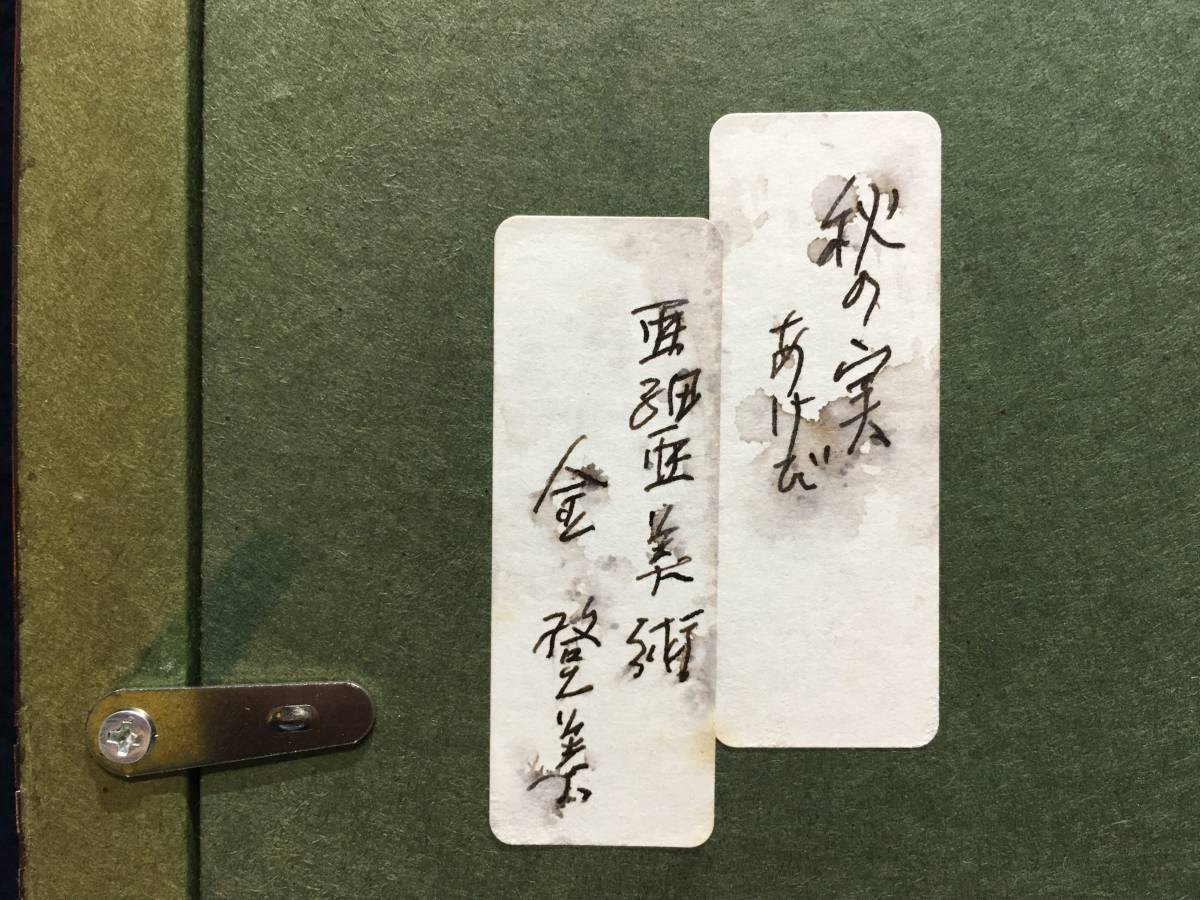 秋の実
あけび
亜細亜美術
金 登美